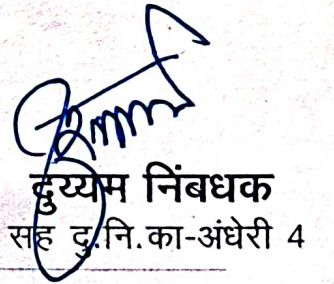 दुय्यम निंबधक
सह दु.नि.का-अंधेरी 4